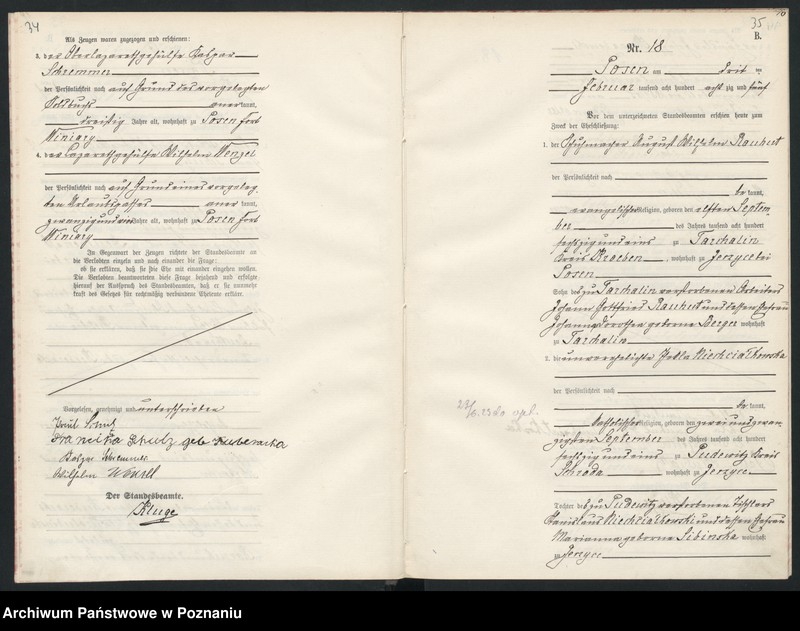 34
Als Zeugen waren zugezogen und erschienen:
3. der Oberlazarethgehülfe Kaspar
Schremmer
der Persönlichkeit nach auf Grund des vorgelegten
Soldbuchs anerkannt,
dreißig Jahre alt, wohnhaft zu Posen Fort
Winiary
4. der Lazarethgehülfe Wilhelm Wenzel
der Persönlichkeit nach auf Grund eines vorgeleg-
ten Urlaubspasses anerkannt,
zwanzig und vier Jahre alt, wohnhaft zu Posen Fort
Winiary
In Gegenwart der Zeugen richtete der Standesbeamte an
die Verlobten einzeln und nach einander die Frage:
ob sie erklären, daß sie die Ehe mit einander eingehen wollen.
Die Verlobten beantworteten diese Frage bejahend und erfolgte
hierauf der Ausspruch des Standesbeamten, daß er sie nunmehr
kraft des Gesetzes für rechtmäßig verbundene Eheleute erkläre.
Vorgelesen, genehmigt und unterschrieben
Franciska Schulz geb
Wilhelm Wenzel
Der Standesbeamte.
Kluge
35
B.
Nr. 18
Posen am
Februar tausend acht hundert acht zig und fünf
Vor dem unterzeichneten Standesbeamten erschien heute zum
Zweck der Eheschließung:
1. der Schuhmacher August Wilhelm Rauhut
der Persönlichkeit nach
bekannt,
evangelischer Religion, geboren den elften Septem-
ber des Jahres tausend acht hundert
sechszig und eins zu Tarchalin
Kreis Kroeben, wohnhaft zu Jerzyce bei
Posen
Sohn des zu Tarchalin verstorbenen Arbeiters
Johann Gottfried Rauhut und dessen Ehefrau
Johanna Dorothea geborne Berger wohnhaft
zu Tarchalin
2. die unverehelichte Thekla Niechciałkowska
der Persönlichkeit nach
bekannt,
katholischer Religion, geboren den zwei und zwan-
zigsten September des Jahres tausend acht hundert
sechszig und eins zu Pudewitz Kreis
Schroda wohnhaft zu Jerzyce
Tochter des zu Pudewitz verstorbenen Tischlers
Stanislaus Niechciałkowski und dessen Ehefrau
Marianna geborne Sibinska wohnhaft
zu Jerzyce
Archiwum Państwowe w Poznaniu